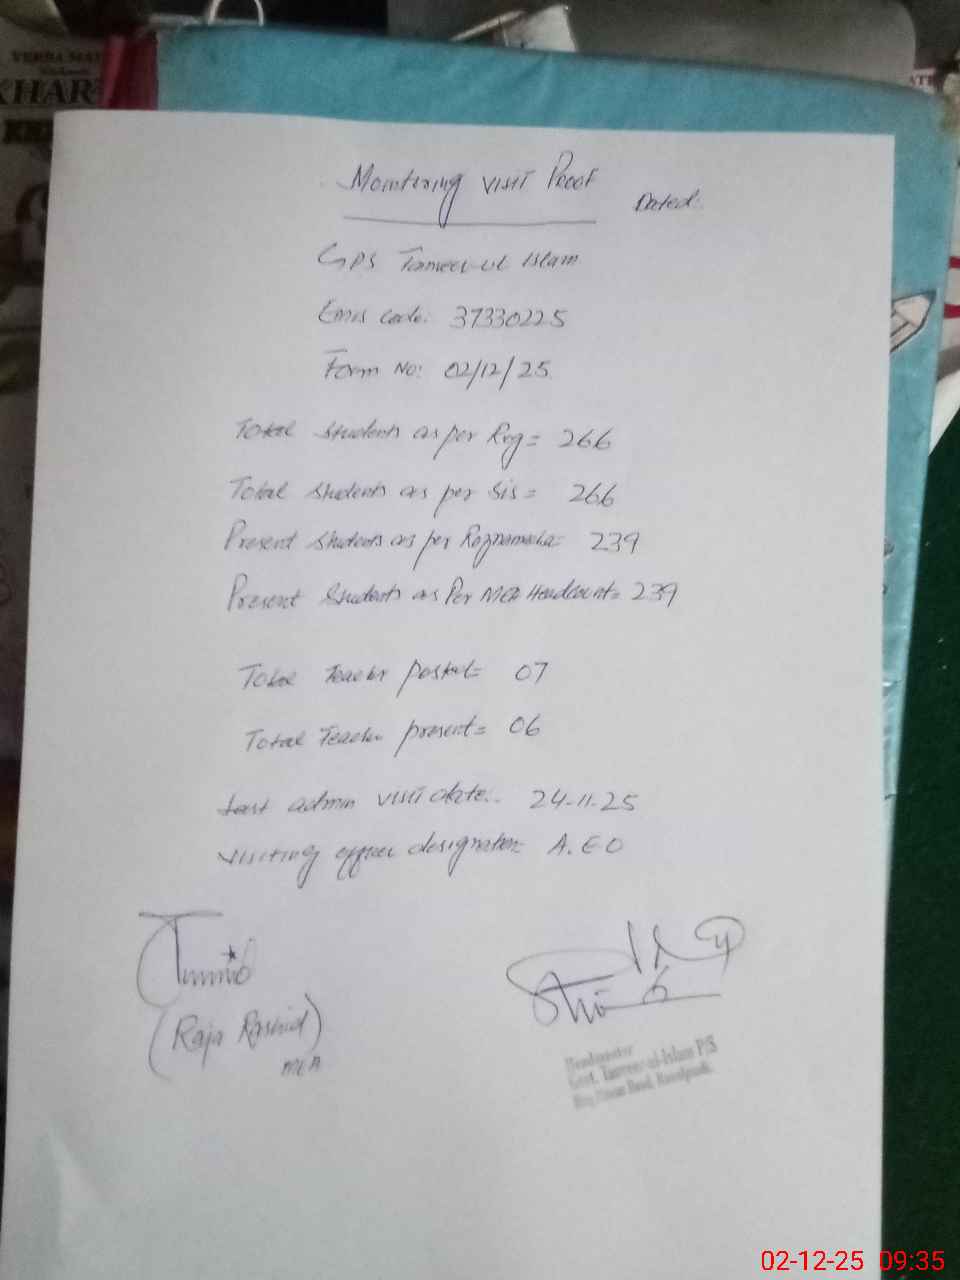 Monitoring Visit Proof
Dated:
GPS Tameer-ul Islam
Emis code: 37330225
Form No: 02/12/25
Total Students as per Reg = 266
Total Students as per Sis = 266
Present Students as per Roznamcha = 239
Present Students as Per MEA Headcount = 239
Total Teacher posted = 07
Total Teacher present = 06
Last admin visit date:. 24-11-25
Visiting officer designation: A.E.O
(Raja Rashid)
MEA
Headmaster
Govt. Tameer-ul-Islam P/S
Road, Rawalpindi.
VERBA
KHAR
02-12-25 09:35